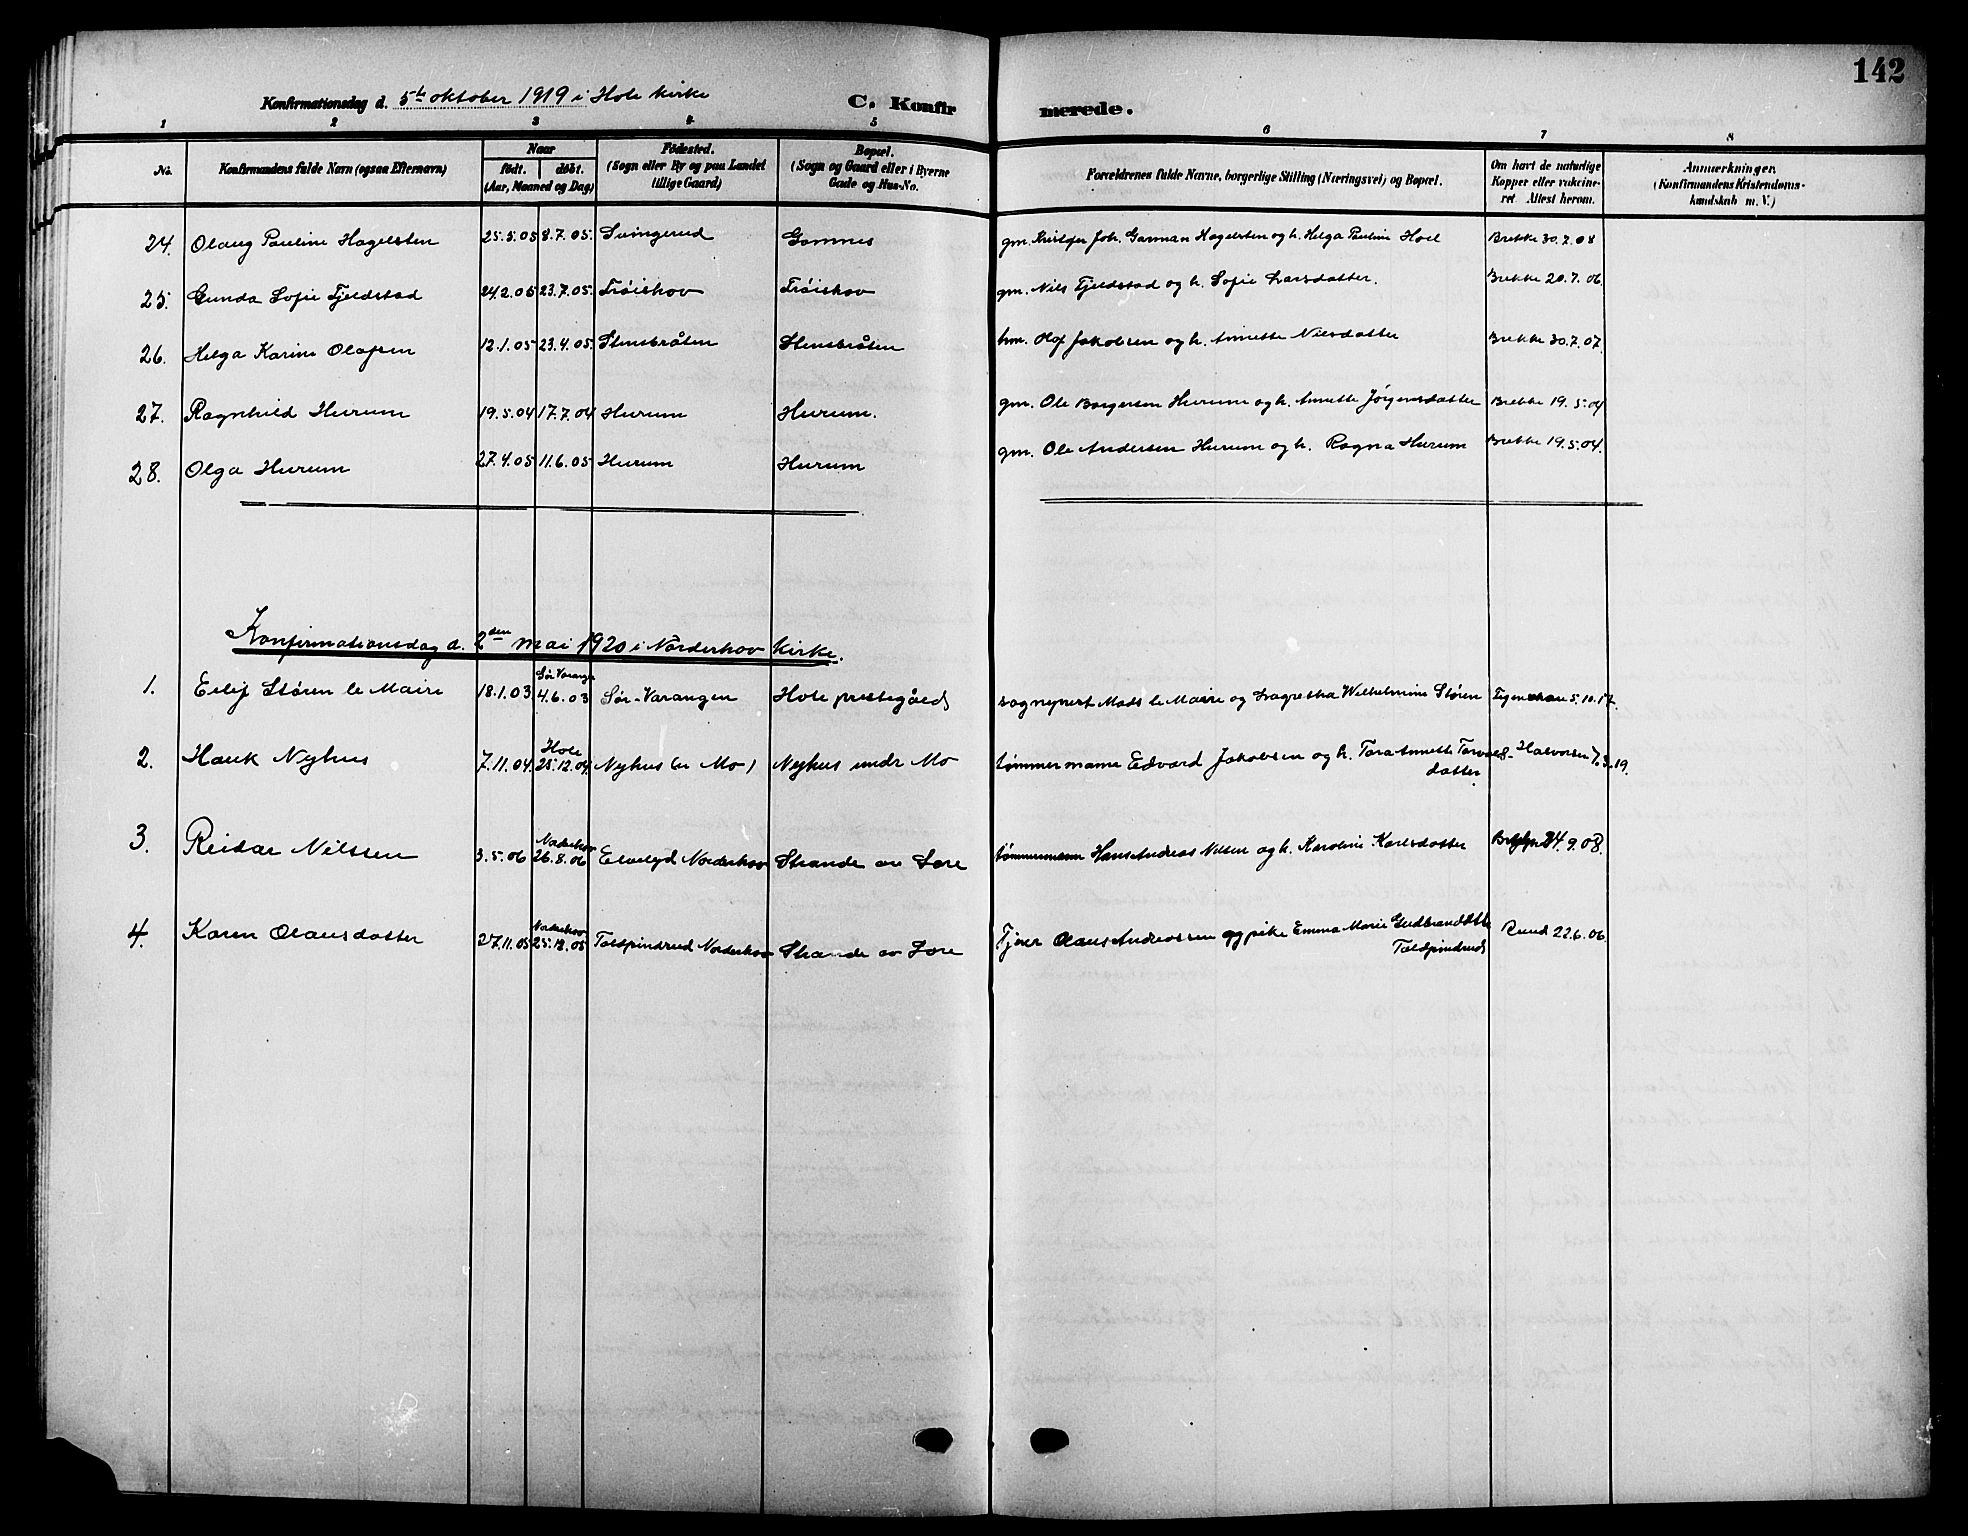 142
Konfirmationsdag d. 5te oktober 1919 i Hole kirke C. Konfirmerede.
1 2 3 4 5 6 7 8
No. Konfirmandens fulde Navn (ogsaa Efternavn) Naar födt. döbt. (Aar, Maaned og Dag) Födested. (Sogn eller By og paa Landet tillige Gaard) Bopæl. (Sogn og Gaard eller i Byerne Gade og Hus-No. Forældrenes fulde Navne, borgerlige Stilling (Næringsvei) og Bopæl. Om havt de naturlige Kopper eller vakcineret Attest herom. Anmærkninger. (Konfirmandens Kristendomskundskab m. V.)
24. Olaug Pauline Hagelsten 25.5.05 8.7.05. Svingerud Gomnes gm. Kristofer Joh. Garman Hagelsten og h. Helga Pauline Hoel Brekke 30.7.08
25. Gunda Sofie Fjeldstad 24.2.05 23.7.05. Trøishov Trøishov gm. Nils Fjeldstad og h. Sofie Larsdatter. Brekke 20.7.06
26. Helga Karine Olafsen 12.1.05 23.4.05. Stensbråten Stensbråten hm. Olof Jakobsen og h. Annette Nilsdatter Brekke 30.7.07.
27. Ragnhild Hurum 19.5.04 17.7.04 Hurum Hurum. gm. Ole Borgersen Hurum og h. Annette Jørgensdatter Brekke 19.5.04
28. Olga Hurum 27.4.05 11.6.05 Hurum Hurum gm. Ole Andersen Hurum og h. Ragna Hurum Brekke 19.5.04.
Konfirmationsdag d. 2den mai 1920 i Norderhov kirke.
1. Eilif Støren le Maire 18.1.03 Sør Varang. 4.6.03 Sør-Varangen Hole prestegård sogneprest Mads le Maire og Dagretha Wilhelmine Støren 5.10.17.
2. Hauk Nyhus 7.11.04 Hole 25.12.04 Nyhus (u Mo) Nyhus undr Mo tømmermann Edvard Jakobsen og h. Tora Annette Torvals- Halvorsen 7.3.19.
datter
3. Reidar Nilssen 3.5.06 Norderhov 26.8.06 Elvelyd Norderhov Strande av Lore tømmermann Hans Andreas Nilsen og h. Karoline Karlsdatter 24.9.08.
4. Karen Olausdatter 27.11.05 Norderhov 25.12.05 Toldpindrud Norderhov Strande av Lore Fjører Olaus Andreassen og pike Emma Marie Gudbrandsdtt Ruud 22.6.06
Toldpindrud